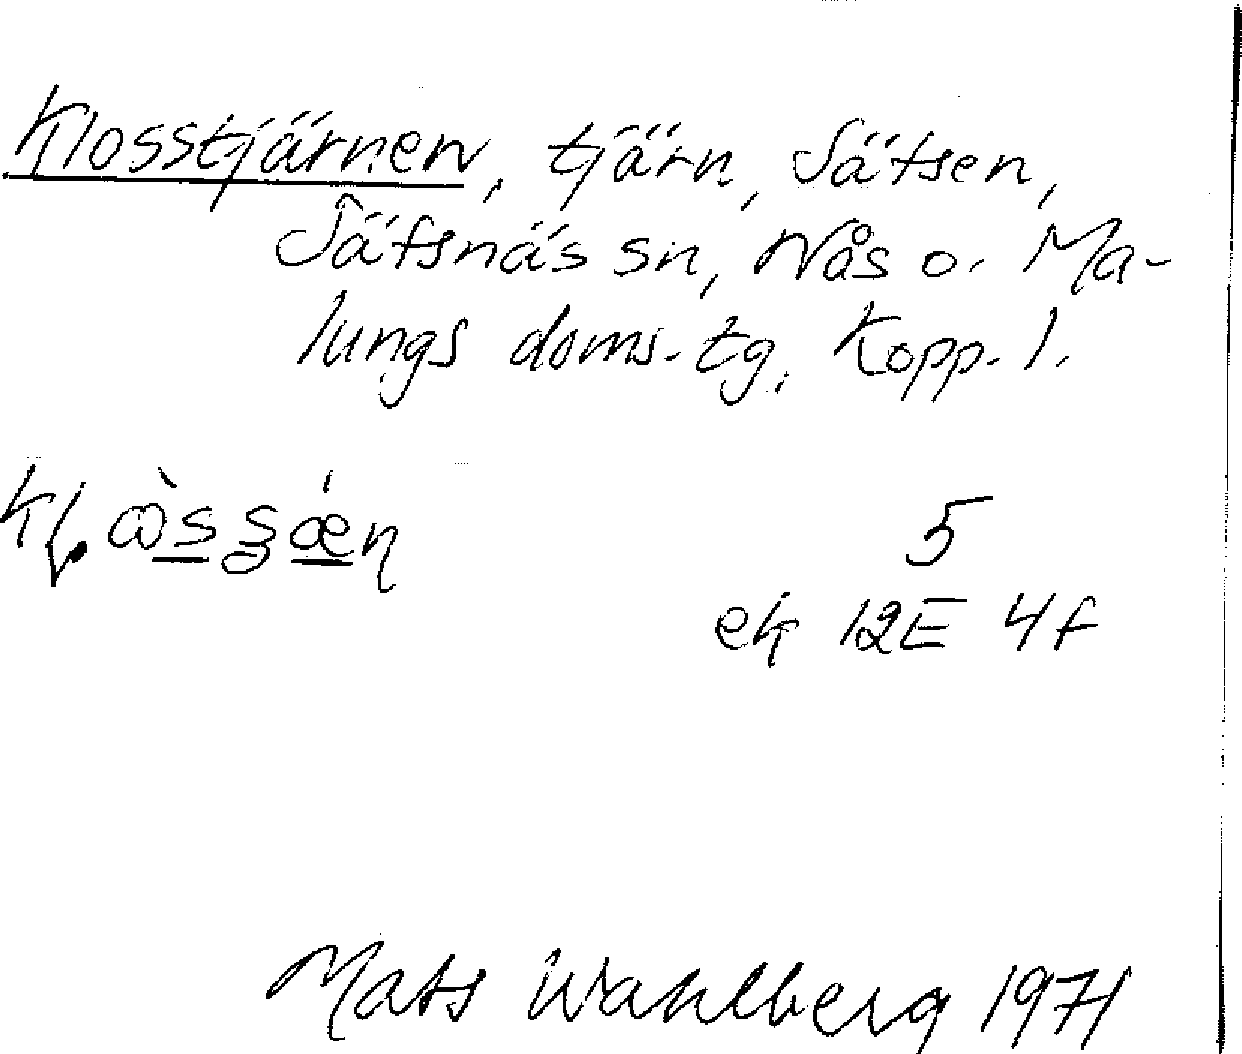 Klosstjärnen, tjärn, Sätsen,
Säfsnäs sn, Nås o. Ma-
lungs doms. tg, Kopp. l.
5
ek 12E 4f
Mats Wahlberg 1971